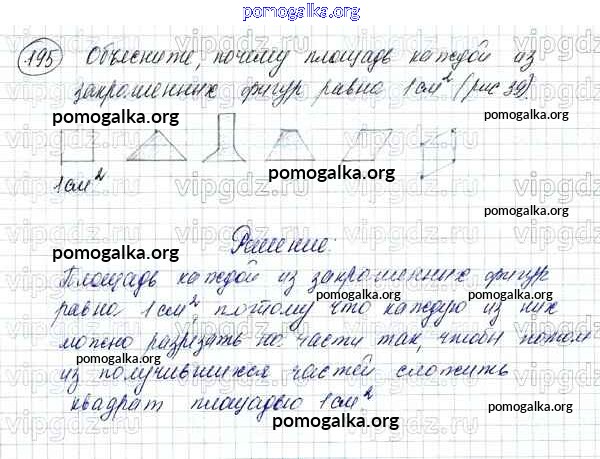 pomogalka.org
195 Объясните, почему площадь каждой из
закрашенных фигур равна 1 см² (рис 39).
pomogalka.org
1 см²
pomogalka.org
pomogalka.org
Решение:
pomogalka.org
pomogalka.org
Площадь каждой из закрашенных фигур
pomogalka.org
pomogalka.org
равна 1 см², потому что каждую из них
можно разрезать на части так, чтобы потом
pomogalka.org
из получившихся частей сложить
pomogalka.org
квадрат площадью 1 см²
pomogalka.org
pomogalka.org
vipgdz.ru